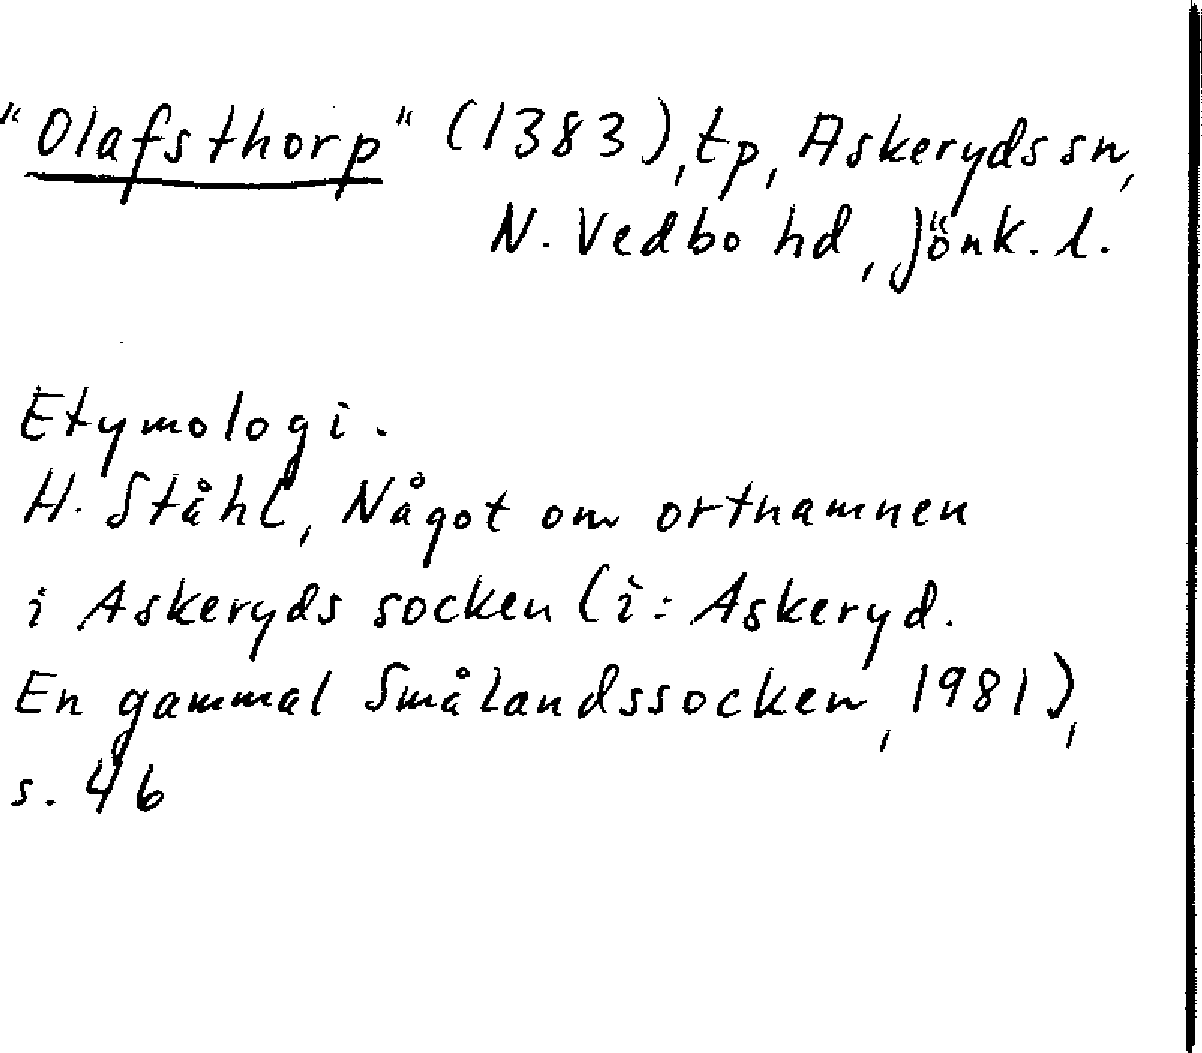 "Olafsthorp" (1383), tp, Askeryds sn,
N. Vedbo hd, Jönk. l.
Etymologi.
H. Ståhl, Något om ortnamnen
i Askeryds socken (i: Askeryd.
En gammal Smålandssocken, 1981),
s. 46